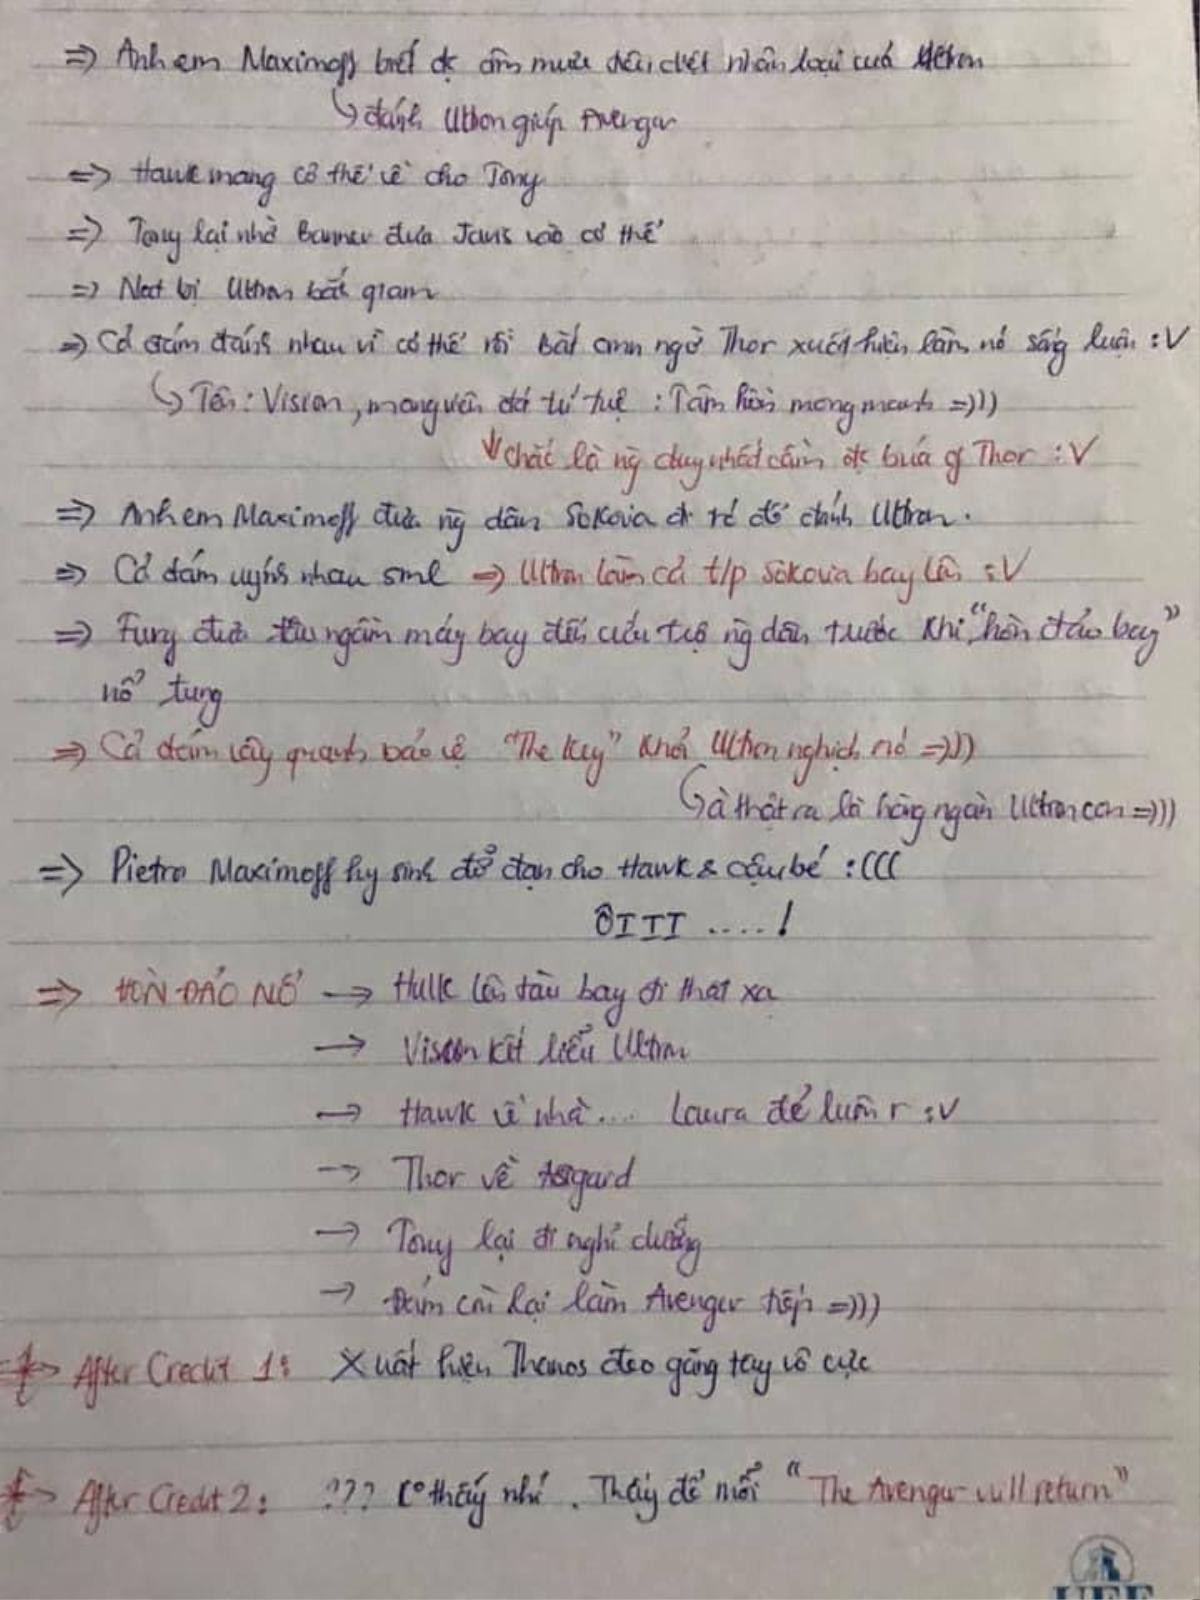 => Anh em Maximoff biết đc âm mưu tiêu diệt nhân loại của Ultron
↳ đánh Ultron giúp Avenger
=> Hawk mang cơ thể về cho Tony
=> Tony lại nhờ Banner đưa Javis vào cơ thể
=> Nat bị Ultron bắt giam
=> Cả đám đánh nhau vì cơ thể rồi bất ình ngờ Thor xuất hiện làm nó sống luôn :V
↳ Tên: Vision, mang viên đá trí tuệ : Tâm hồn mong manh =)))
↓ chắc là ng duy nhất cầm đc búa of Thor :V
=> Anh em Maximoff đưa ng dân Sokovia đi để đánh Ultron.
=> Cả đám uýnh nhau sml => Ultron làm cả t/p Sokovia bay lên :V
=> Fury đưa tàu ngầm máy bay đến cứu trợ ng dân trước khi "hòn đảo bay"
nổ tung
=> Cả đám vây quanh bảo vệ "The Key" khỏi Ultron nghịch nó =)))
↳ à thật ra là hàng ngàn Ultron con =)))
=> Pietro Maximoff hy sinh đỡ đạn cho Hawk & cậu bé :(((
ÔIII ....!
=> HÒN ĐẢO NỔ → Hulk lên tàu bay đi thật xa
→ Vision kết liễu Ultron
→ Hawk về nhà... Laura đẻ luôn r :V
→ Thor về Asgard
→ Tony lại đi nghỉ dưỡng
→ Đám còn lại làm Avenger tiếp =)))
After Credit 1: Xuất hiện Thanos đeo găng tay vô cực
After Credit 2: ??? Có thấy nhỉ. Thấy để mỗi "The Avenger will return"
UEF